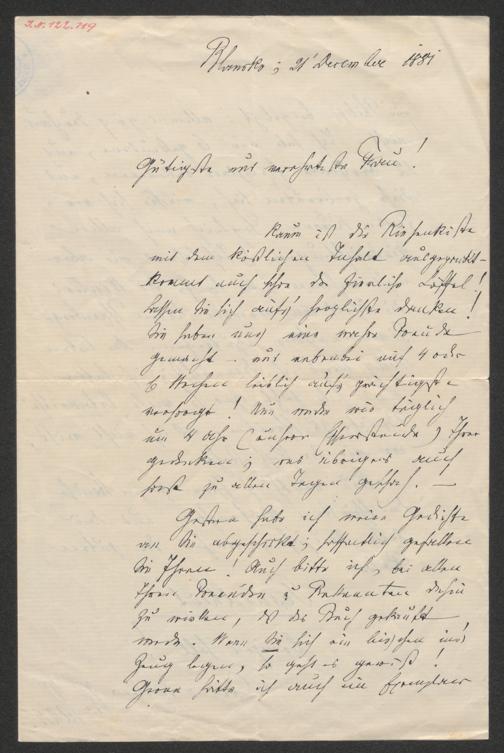 I.N. 122.719
Blansko; 21' December 1881
Gütigste und verehrteste Frau!
Kaum ist die Riesenkiste
mit dem köstlichen Inhalt ausgepackt -
kommt auch schon der zierliche Löffel!
Lassen Sie sich auf's herzlichste danken!
Sie haben uns eine wahre Freude
gemacht - und nebenbei auf 4 oder
6 Wochen leiblich auf's prächtigste
versorgt! Nun werde wir täglich
um 4 Uhr (unsere Theestunde) Ihrer
gedenken; was übrigens auch
sonst zu allen Tagen geschah. —
Gestern habe ich meine Gedichte
an Sie abgeschickt; hoffentlich gefallen
Sie Ihnen! Auch bitte ich, bei allen
Ihren Freunden u Bekannten dahin
zu wirken, daß das Buch gekauft
werde. Wenn Sie sich ein bischen in's
Zeug legen, so geht es gewiß!
Gerne hätte ich auch ein Exemplar